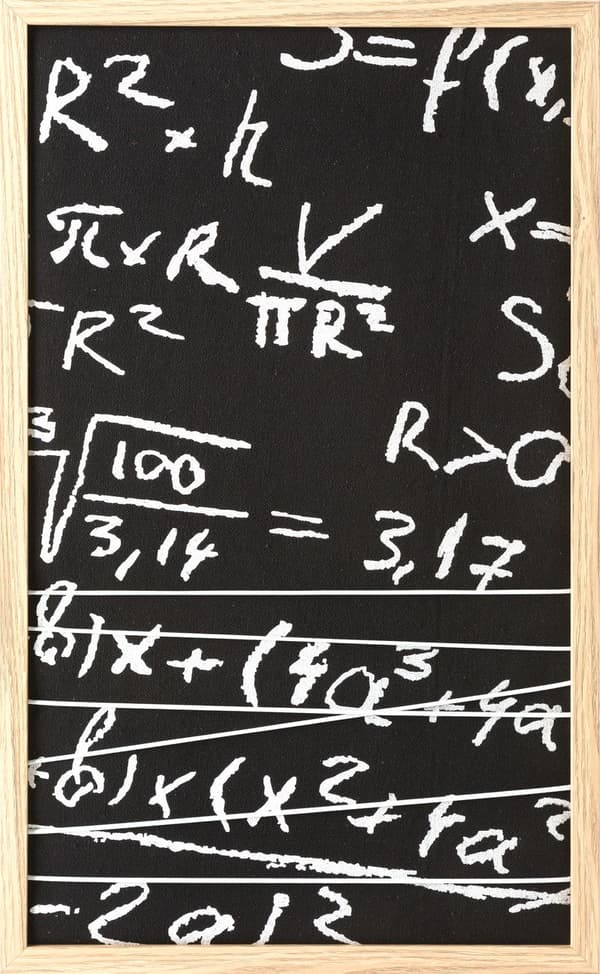 S = f(x,
R² × h
π × R V/πR² x =
R² S
R > 0
³√(100/3,14) = 3,17
b) x + (4a³ + 4a
b) × (x² + 4a²
- 2a)²